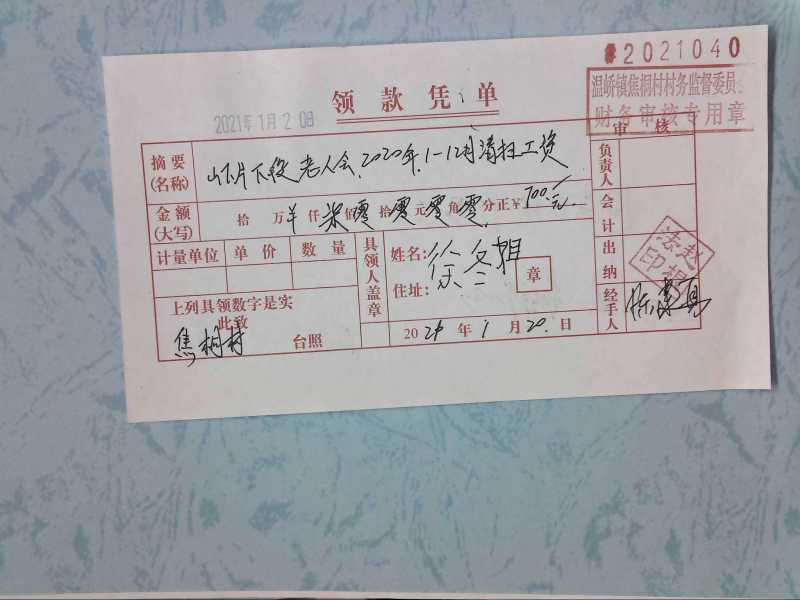 2021040
温峤镇焦桐村村务监督委员会
财务审核专用章
领款凭单
2021年1月20日
审核
摘要
(名称)
山下片下段老人会,2020年,1-12月清扫工资
负责人
金额
(大写)
拾万仟柒佰零拾零元零角零分正¥700.元
会计
计量单位 单价 数量
具领人盖章
姓名: 徐冬
住址:
章
出纳
法赵印
上列具领数字是实
此致
焦桐村 台照
2021年1月20.日
经手人
陈